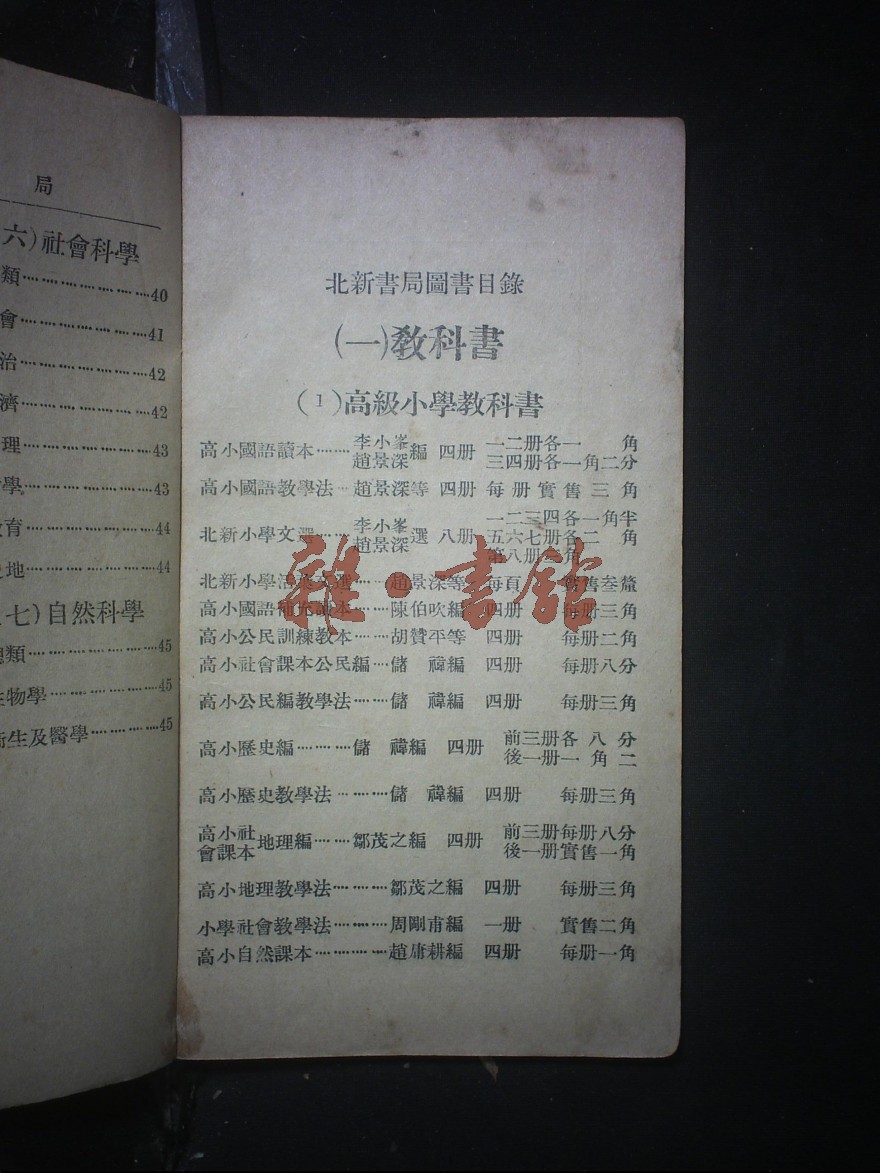 局
六)社會科學
類…………………40
會…………………41
治…………………42
濟…………………42
理…………………43
學…………………43
教育…………………44
地…………………44
七)自然科學
總類…………………45
生物學…………………45
衛生及醫學…………………45
北新書局圖書目錄
(一)教科書
(1)高級小學教科書
高小國語讀本……李小峯 趙景深編 四册 一二册各一角 三四册各一角二分
高小國語教學法…趙景深等 四册 每册實售三角
北新小學文選……李小峯 趙景深選 八册 一二三四各一角半 五六七册各二角 第八册 角
北新小學活葉文選……趙景深等 每頁 實售叁釐
高小國語補充讀本……陳伯吹編 四册 每册三角
高小公民訓練教本……胡贊平等 四册 每册二角
高小社會課本公民編…儲禕編 四册 每册八分
高小公民編教學法……儲禕編 四册 每册三角
高小歷史編………儲禕編 四册 前三册各八分 後一册一角二
高小歷史教學法………儲禕編 四册 每册三角
高小社會課本地理編……鄒茂之編 四册 前三册每册八分 後一册實售一角
高小地理教學法………鄒茂之編 四册 每册三角
小學社會教學法………周剛甫編 一册 實售二角
高小自然課本…………趙庸耕編 四册 每册一角
雜·書館